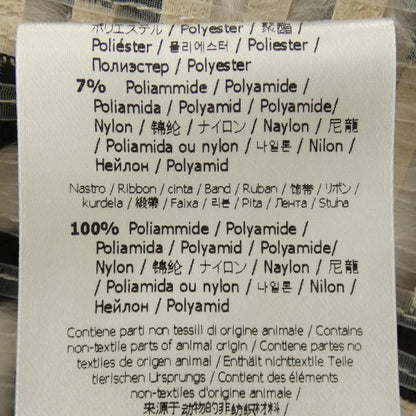 ポリエステル / Polyester / 聚酯 /
Poliéster / 폴리에스터 / Poliester /
Полиэстер / Polyester
7% Poliammide / Polyamide /
Poliamida / Polyamid / Polyamide/
Nylon / 锦纶 / ナイロン / Naylon / 尼龍
/ Poliamida ou nylon / 나일론 / Nilon /
Нейлон / Polyamid
Nastro / Ribbon / cinta / Band / Ruban / 饰带 / リボン /
kurdela / 緞帶 / Faixa / 리본 / Pita / Лента / Stuha
100% Poliammide / Polyamide /
Poliamida / Polyamid / Polyamide/
Nylon / 锦纶 / ナイロン / Naylon / 尼龍
/ Poliamida ou nylon / 나일론 / Nilon /
Нейлон / Polyamid
Contiene parti non tessili di origine animale / Contains
non-textile parts of animal origin / Contiene partes no
textiles de origen animal / Enthält nichttextile Teile
tierischen Ursprungs / Contient des éléments
non-textiles d'origine animale /
来源于动物的非纺织材料 /